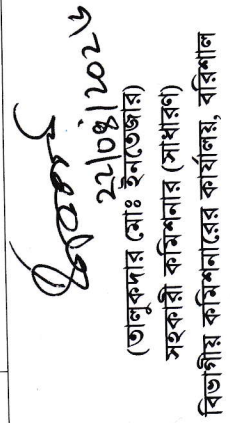 ২২/০৪/২০২৬
(তালুকদার মোঃ ইনতেজার)
সহকারী কমিশনার (সাধারণ)
বিভাগীয় কমিশনারের কার্যালয়, বরিশাল